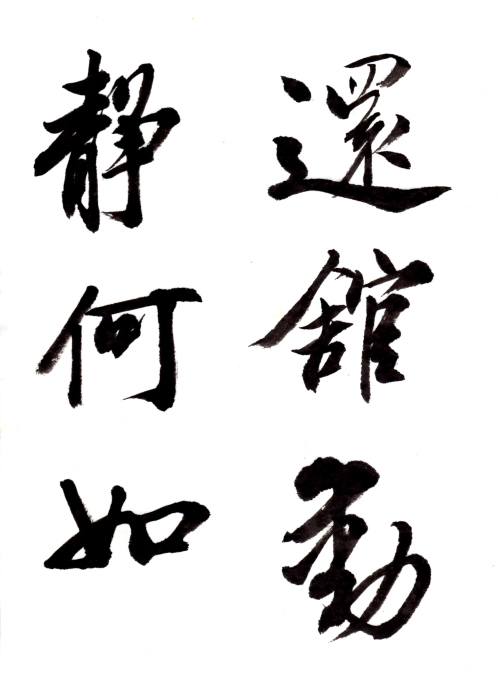 還舘動
靜何如